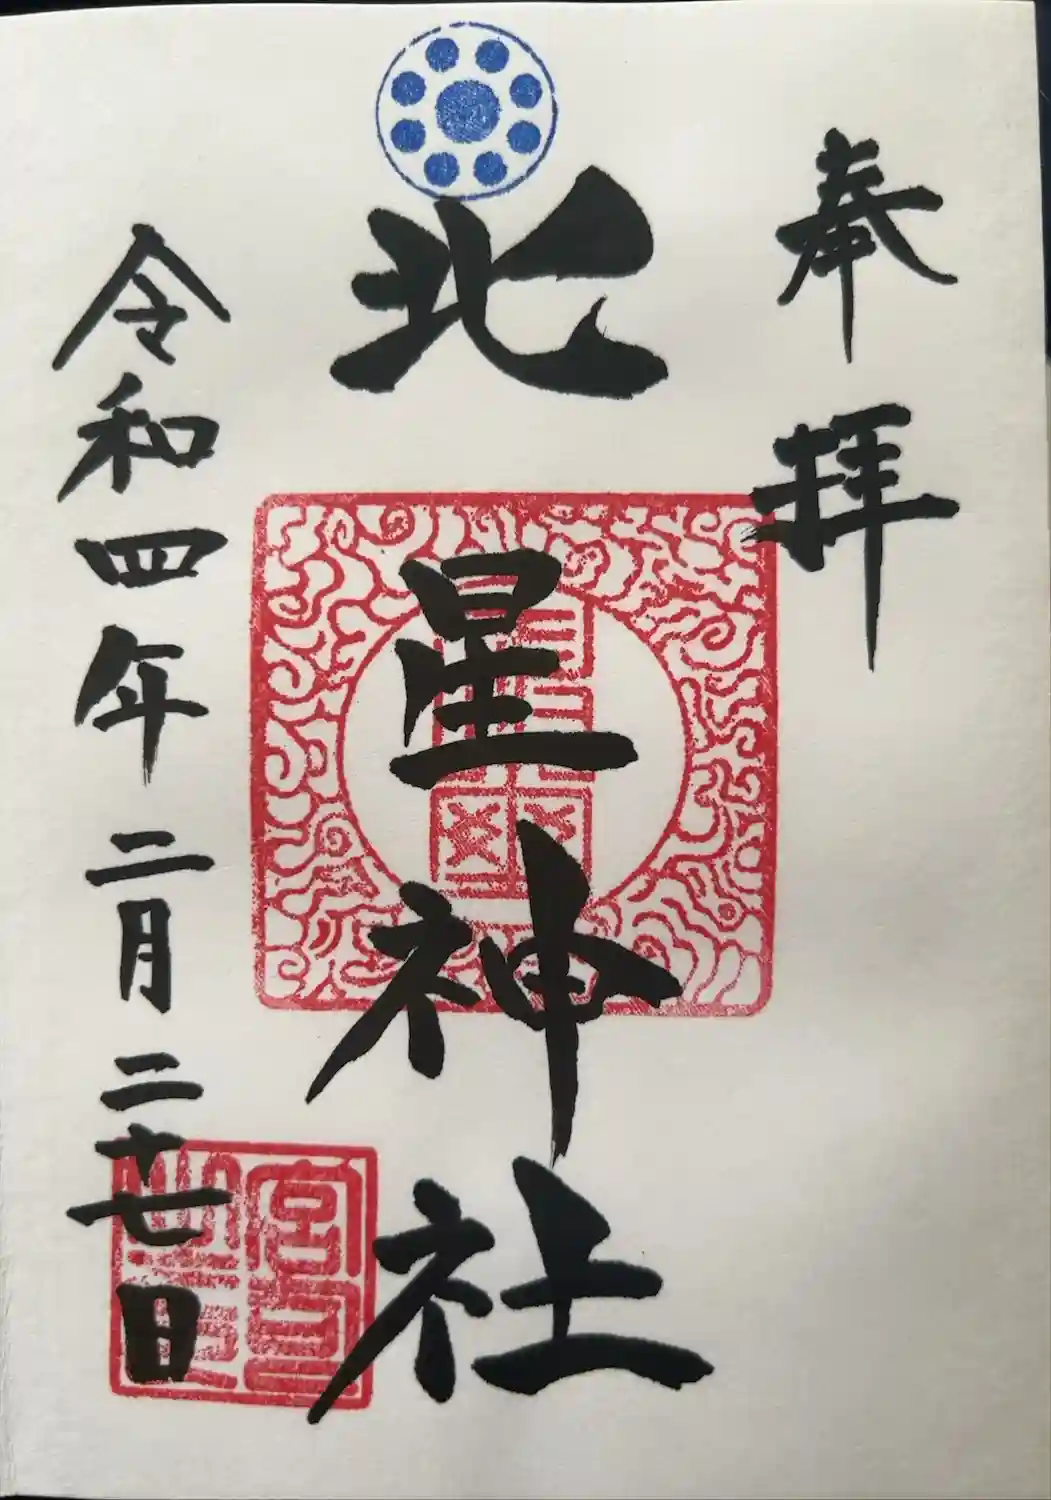 奉拝
北星神社
令和四年二月二十七日